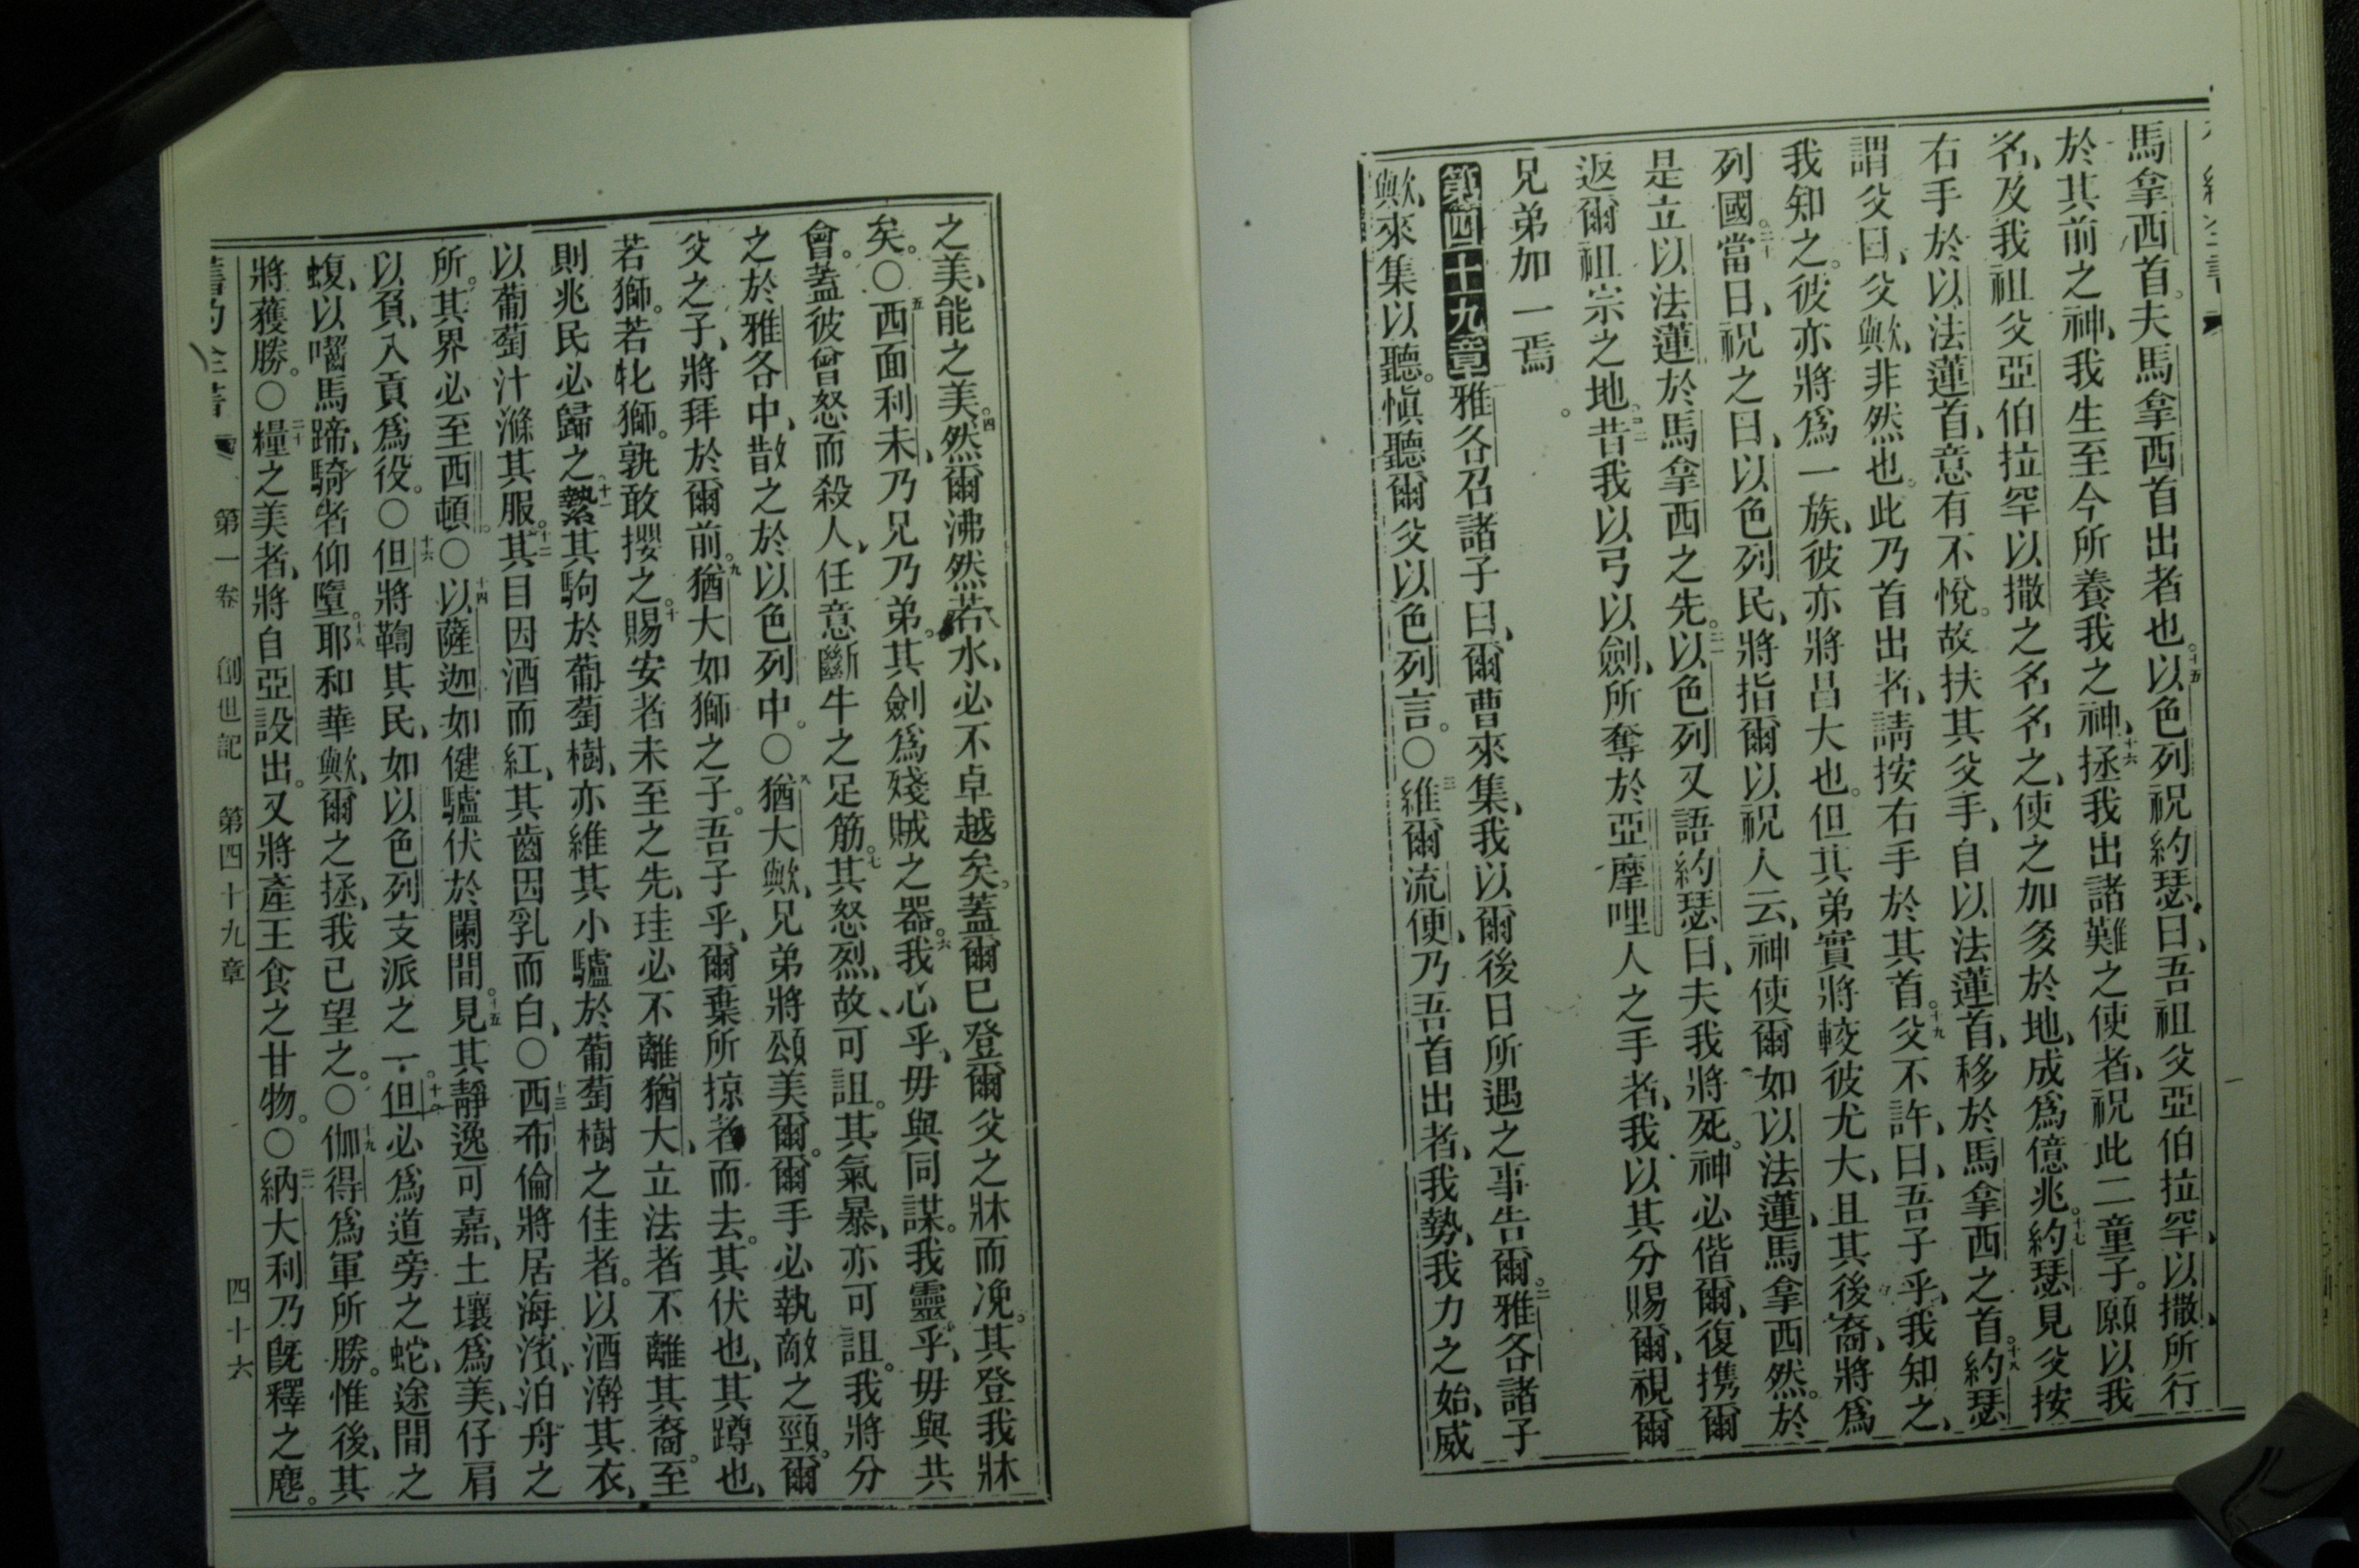 馬拿西首。夫馬拿西首出者也。十五以色列祝約瑟曰、吾祖父亞伯拉罕、以撒、所行
於其前之神、我生至今所養我之神、十六拯我出諸難之使者、祝此二童子。願以我
名、及我祖父亞伯拉罕以撒之名名之、使之加多於地、成爲億兆。十七約瑟見父按
右手於以法蓮首、意有不悅。故扶其父手、自以法蓮首、移於馬拿西之首。十八約瑟
謂父曰、父歟、非然也。此乃首出者、請按右手於其首。十九父不許、曰、吾子乎、我知之、
我知之。彼亦將爲一族、彼亦將昌大也。但其弟實將較彼尤大、且其後裔、將爲
列國。二十當日、祝之曰、以色列民、將指爾以祝人云、神使爾如以法蓮、馬拿西然。於
是立以法蓮於馬拿西之先。二一以色列又語約瑟曰、夫我將死。神必偕爾、復携爾
返爾祖宗之地。二二昔我以弓以劍、所奪於亞摩哩人之手者、我以其分賜爾、視爾
兄弟加一焉。
第四十九章雅各召諸子曰、爾曹來集、我以爾後日所遇之事告爾。二雅各諸子
歟、來集以聽。愼聽爾父以色列言。○三維爾流便、乃吾首出者、我勢、我力之始、威
之美、能之美。四然爾沸然若水、必不卓越矣。蓋爾已登爾父之牀而凂。其登我牀
矣。○五西面利未、乃兄乃弟。其劍爲殘賊之器。六我心乎、毋與同謀。我靈乎、毋與共
會。蓋彼曾怒而殺人、任意斷牛之足筋。七其怒烈、故可詛。其氣暴、亦可詛。我將分
之於雅各中、散之於以色列中。○八猶大歟、兄弟將頌美爾。爾手必執敵之頸。爾
父之子、將拜於爾前。九猶大如獅之子。吾子乎、爾棄所掠者而去。其伏也、其蹲也、
若獅。若牝獅。孰敢攖之。十賜安者未至之先、珪必不離猶大、立法者不離其裔。至
則兆民必歸之。十一縶其駒於葡萄樹、亦維其小驢於葡萄樹之佳者。以酒澣其衣、
以葡萄汁滌其服。十二其目因酒而紅、其齒因乳而白、○十三西布倫將居海濱、泊舟之
所。其界必至西頓。○十四以薩迦如健驢伏於闌間。十五見其靜逸可嘉、土壤爲美、仔肩
以負、入貢爲役。○十六但將鞫其民、如以色列支派之一。十七但必爲道旁之蛇、途間之
蝮、以囓馬蹄、騎者仰墮。十八耶和華歟、爾之拯、我已望之。○十九伽得爲軍所勝。惟後、其
將獲勝。○二十糧之美者、將自亞設出。又將產王食之甘物。○二一納大利乃既釋之麀。
第一卷 創世記 第四十九章 四十六